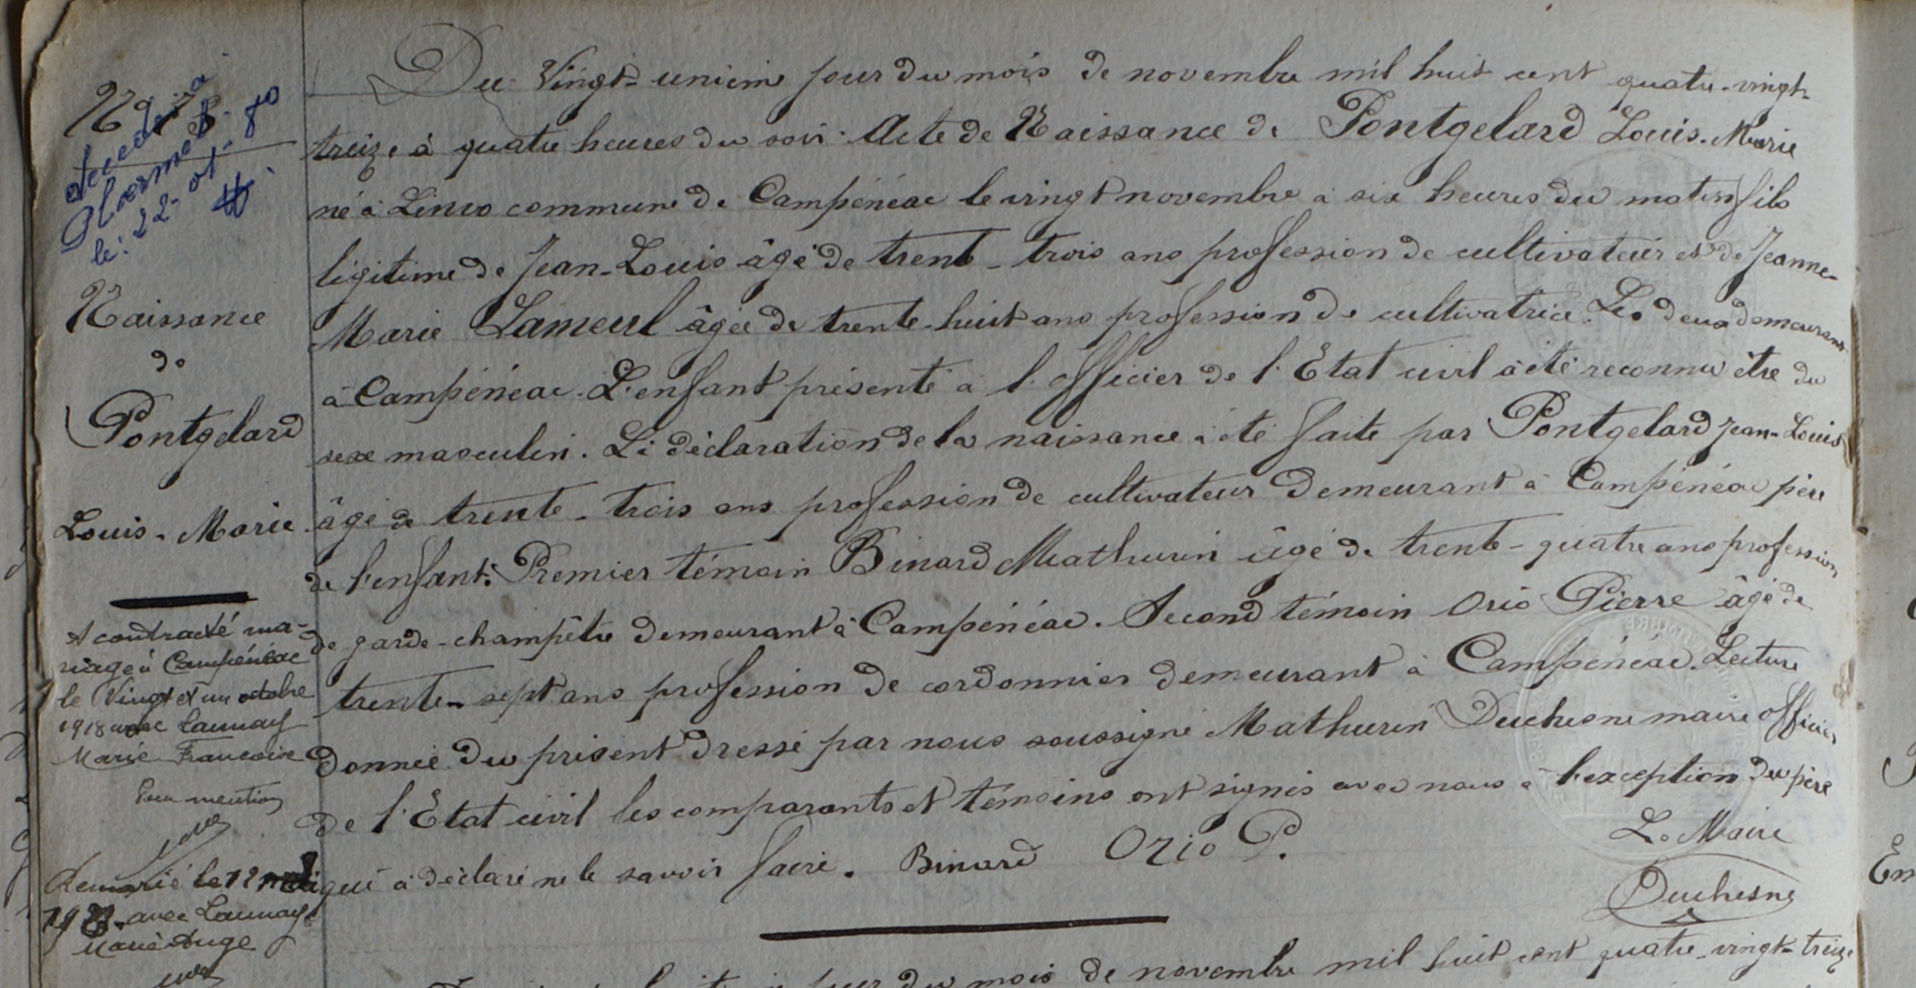 décédé à
Ploërmel
le: 22-01-80
Naissance
de
Pontgelard
Louis-Marie
A contracté ma-
riage à Campénéac
le Vingt et un octobre
1918 avec Launay
Marie Françoise
Pour mention
Remarié le 12
avec Launay
Marie Ange
Du Vingt-unième jour du mois de novembre mil huit cent quatre-vingt-
treize à quatre heures du soir. Acte de Naissance de Pontgelard Louis-Marie
né à commune de Campénéac le vingt novembre à six heures du matin fils
légitime de Jean-Louis âgé de trente-trois ans profession de cultivateur et de Jeanne-
Marie Lameul âgée de trente-huit ans profession de cultivatrice. Les deux demeurant
à Campénéac. L'enfant présenté à l'officier de l'Etat civil a été reconnu être du
sexe masculin. La déclaration de la naissance a été faite par Pontgelard Jean-Louis
âgé de trente-trois ans profession de cultivateur demeurant à Campénéac père
de l'enfant. Premier témoin Binard Mathurin âgé de trente-quatre ans profession
de garde-champêtre demeurant à Campénéac. Second témoin Orio Pierre âgé de
trente-sept ans profession de cordonnier demeurant à Campénéac. Lecture
donnée du présent dressé par nous soussigné Mathurin Duchesne maire officier
de l'Etat civil les comparants et témoins ont signés avec nous à l'exception du père
qui a déclaré ne le savoir faire. Binard Orio P.
Le Maire
Duchesne
jour du mois de novembre mil huit cent quatre-vingt-treize